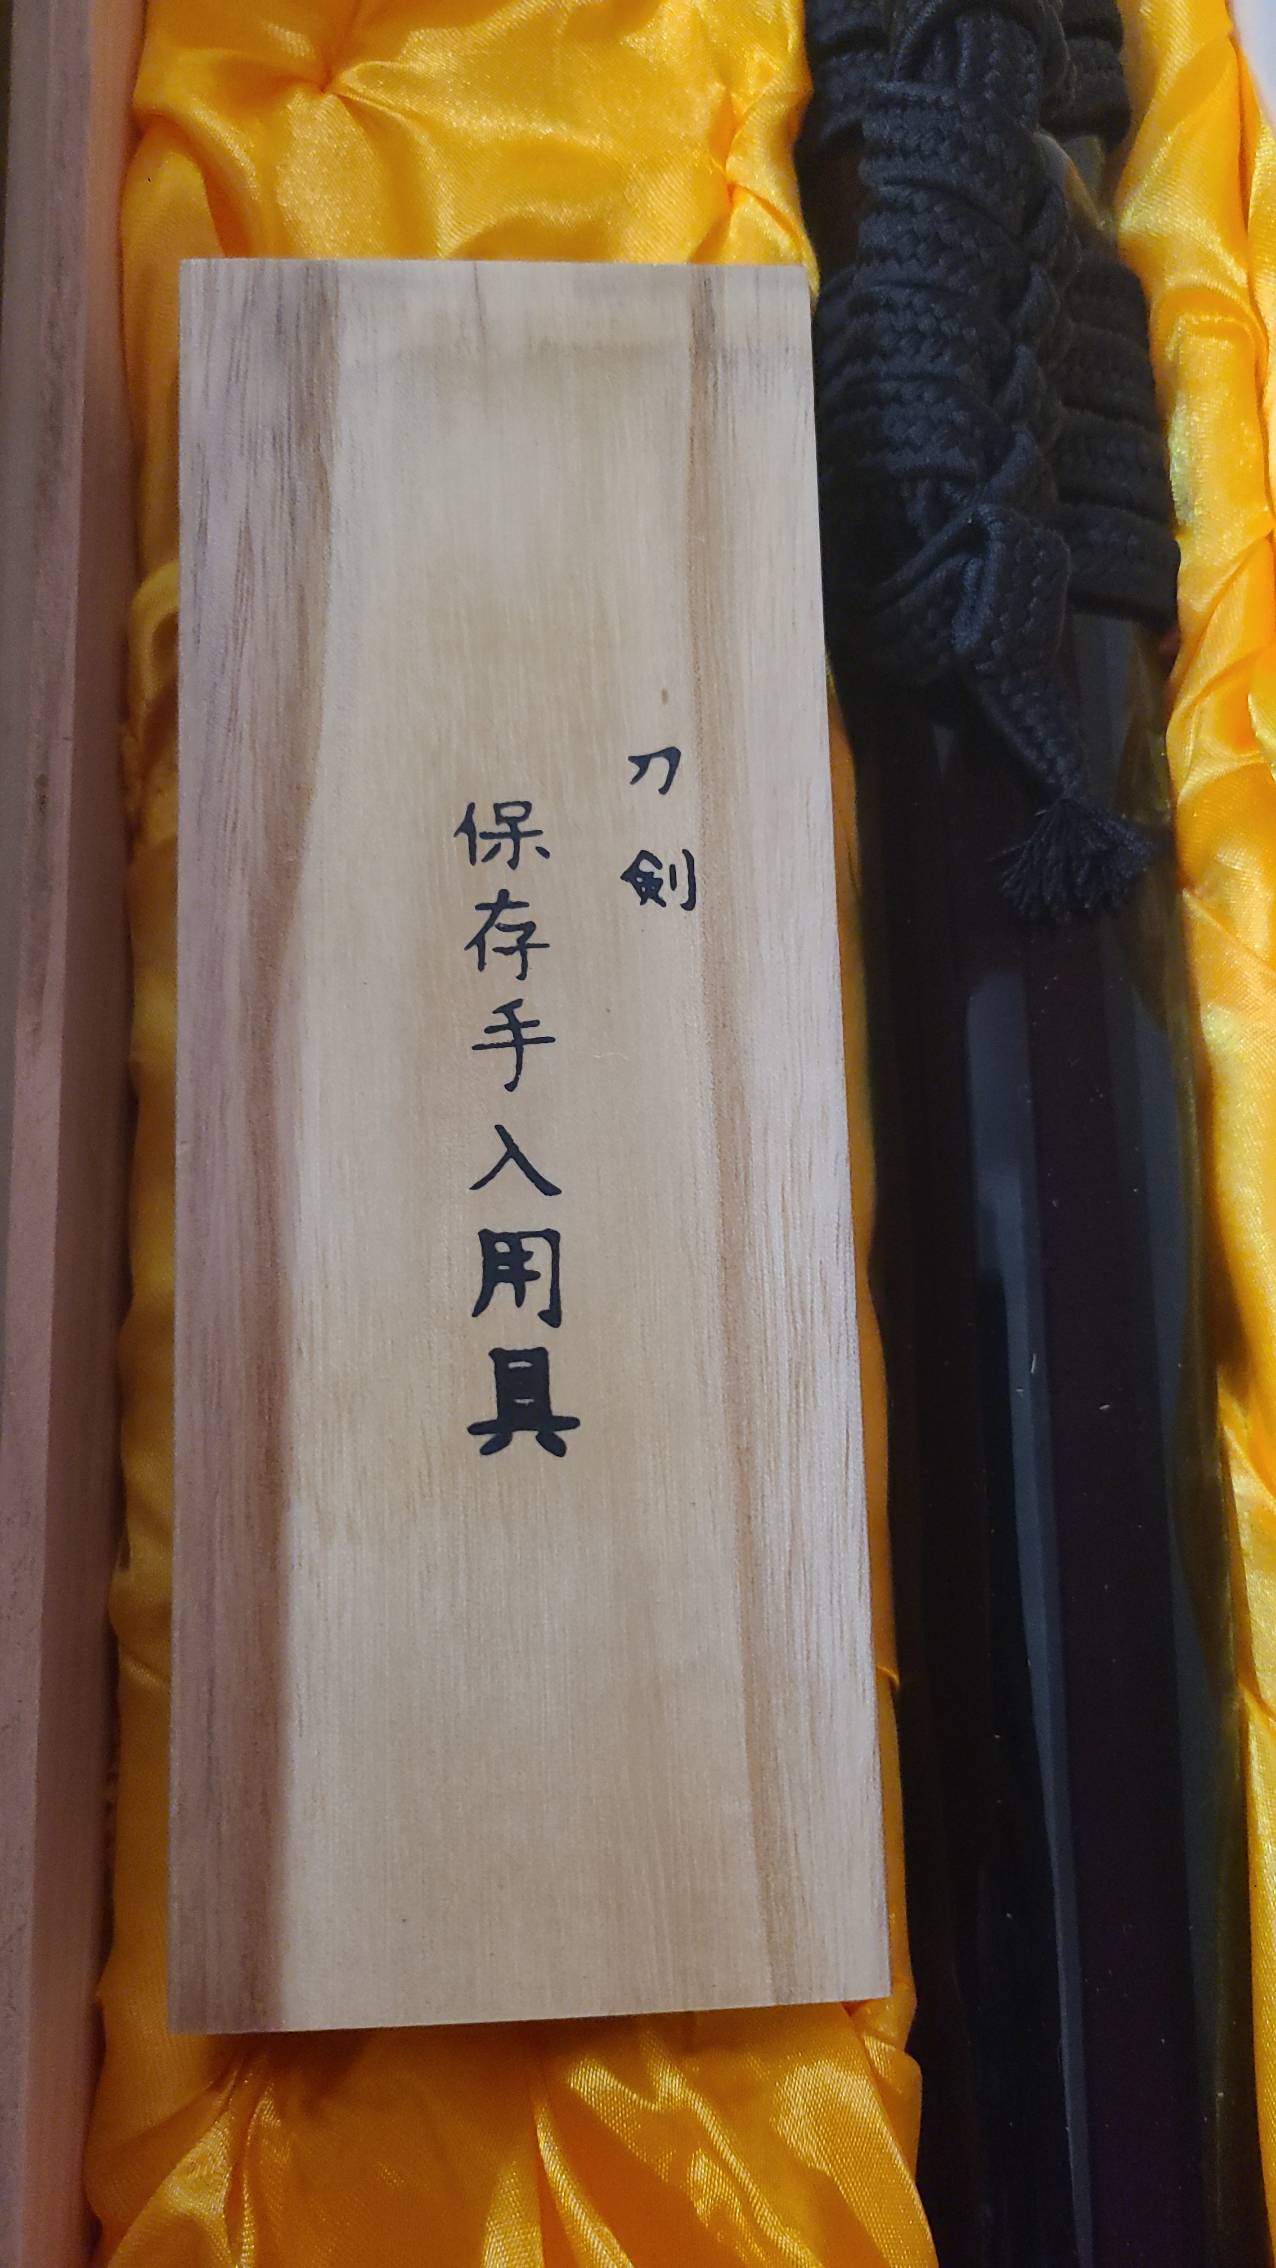 刀剣
保存手入用具